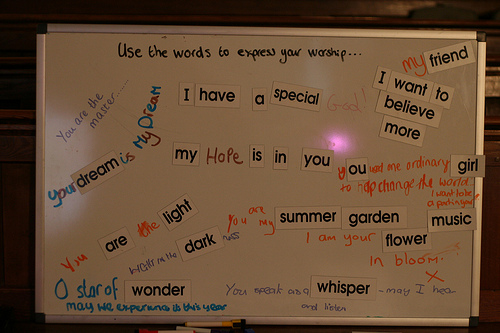 Use the words to express your worship...
my friend
You are the master......
I have a special God!
I want to believe more
your dream is My Dream
my Hope is in you
you used me ordinary girl
to help change the world.
I want to be a part in your music
You are the light
in the darkness
You are my summer garden
I am your flower
in bloom.
x
O star of wonder
may we experience it this year
You speak as a whisper - may I hear
and listen